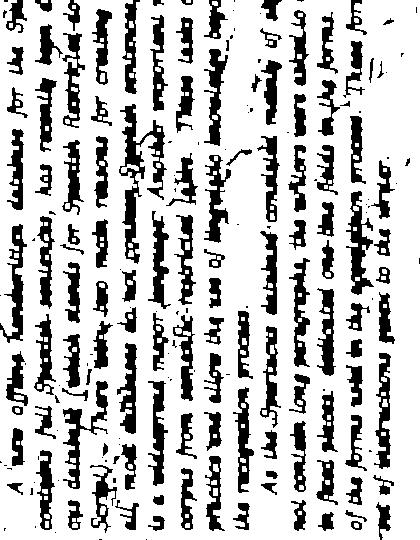 A new offline handwritten database for the Spa
contains full Spanish sentences, has recently been d
cus database which stands for Spanish Restricted-do
Script). There were two main reasons for creating
all, most databases do not contain Spanish sentences,
is a widespread major language. Another important r
corpus from semantic-restricted tasks. These tasks a
practice and allow the use of linguistic knowledge beyo
the recognition process.
As the Spartacus database consisted mainly of sh
not contain long paragraphs, the writers were asked to
in fixed places: dedicated one-line fields in the forms.
of the forms used in the acquisition process. These for
set of instructions given to the writer.